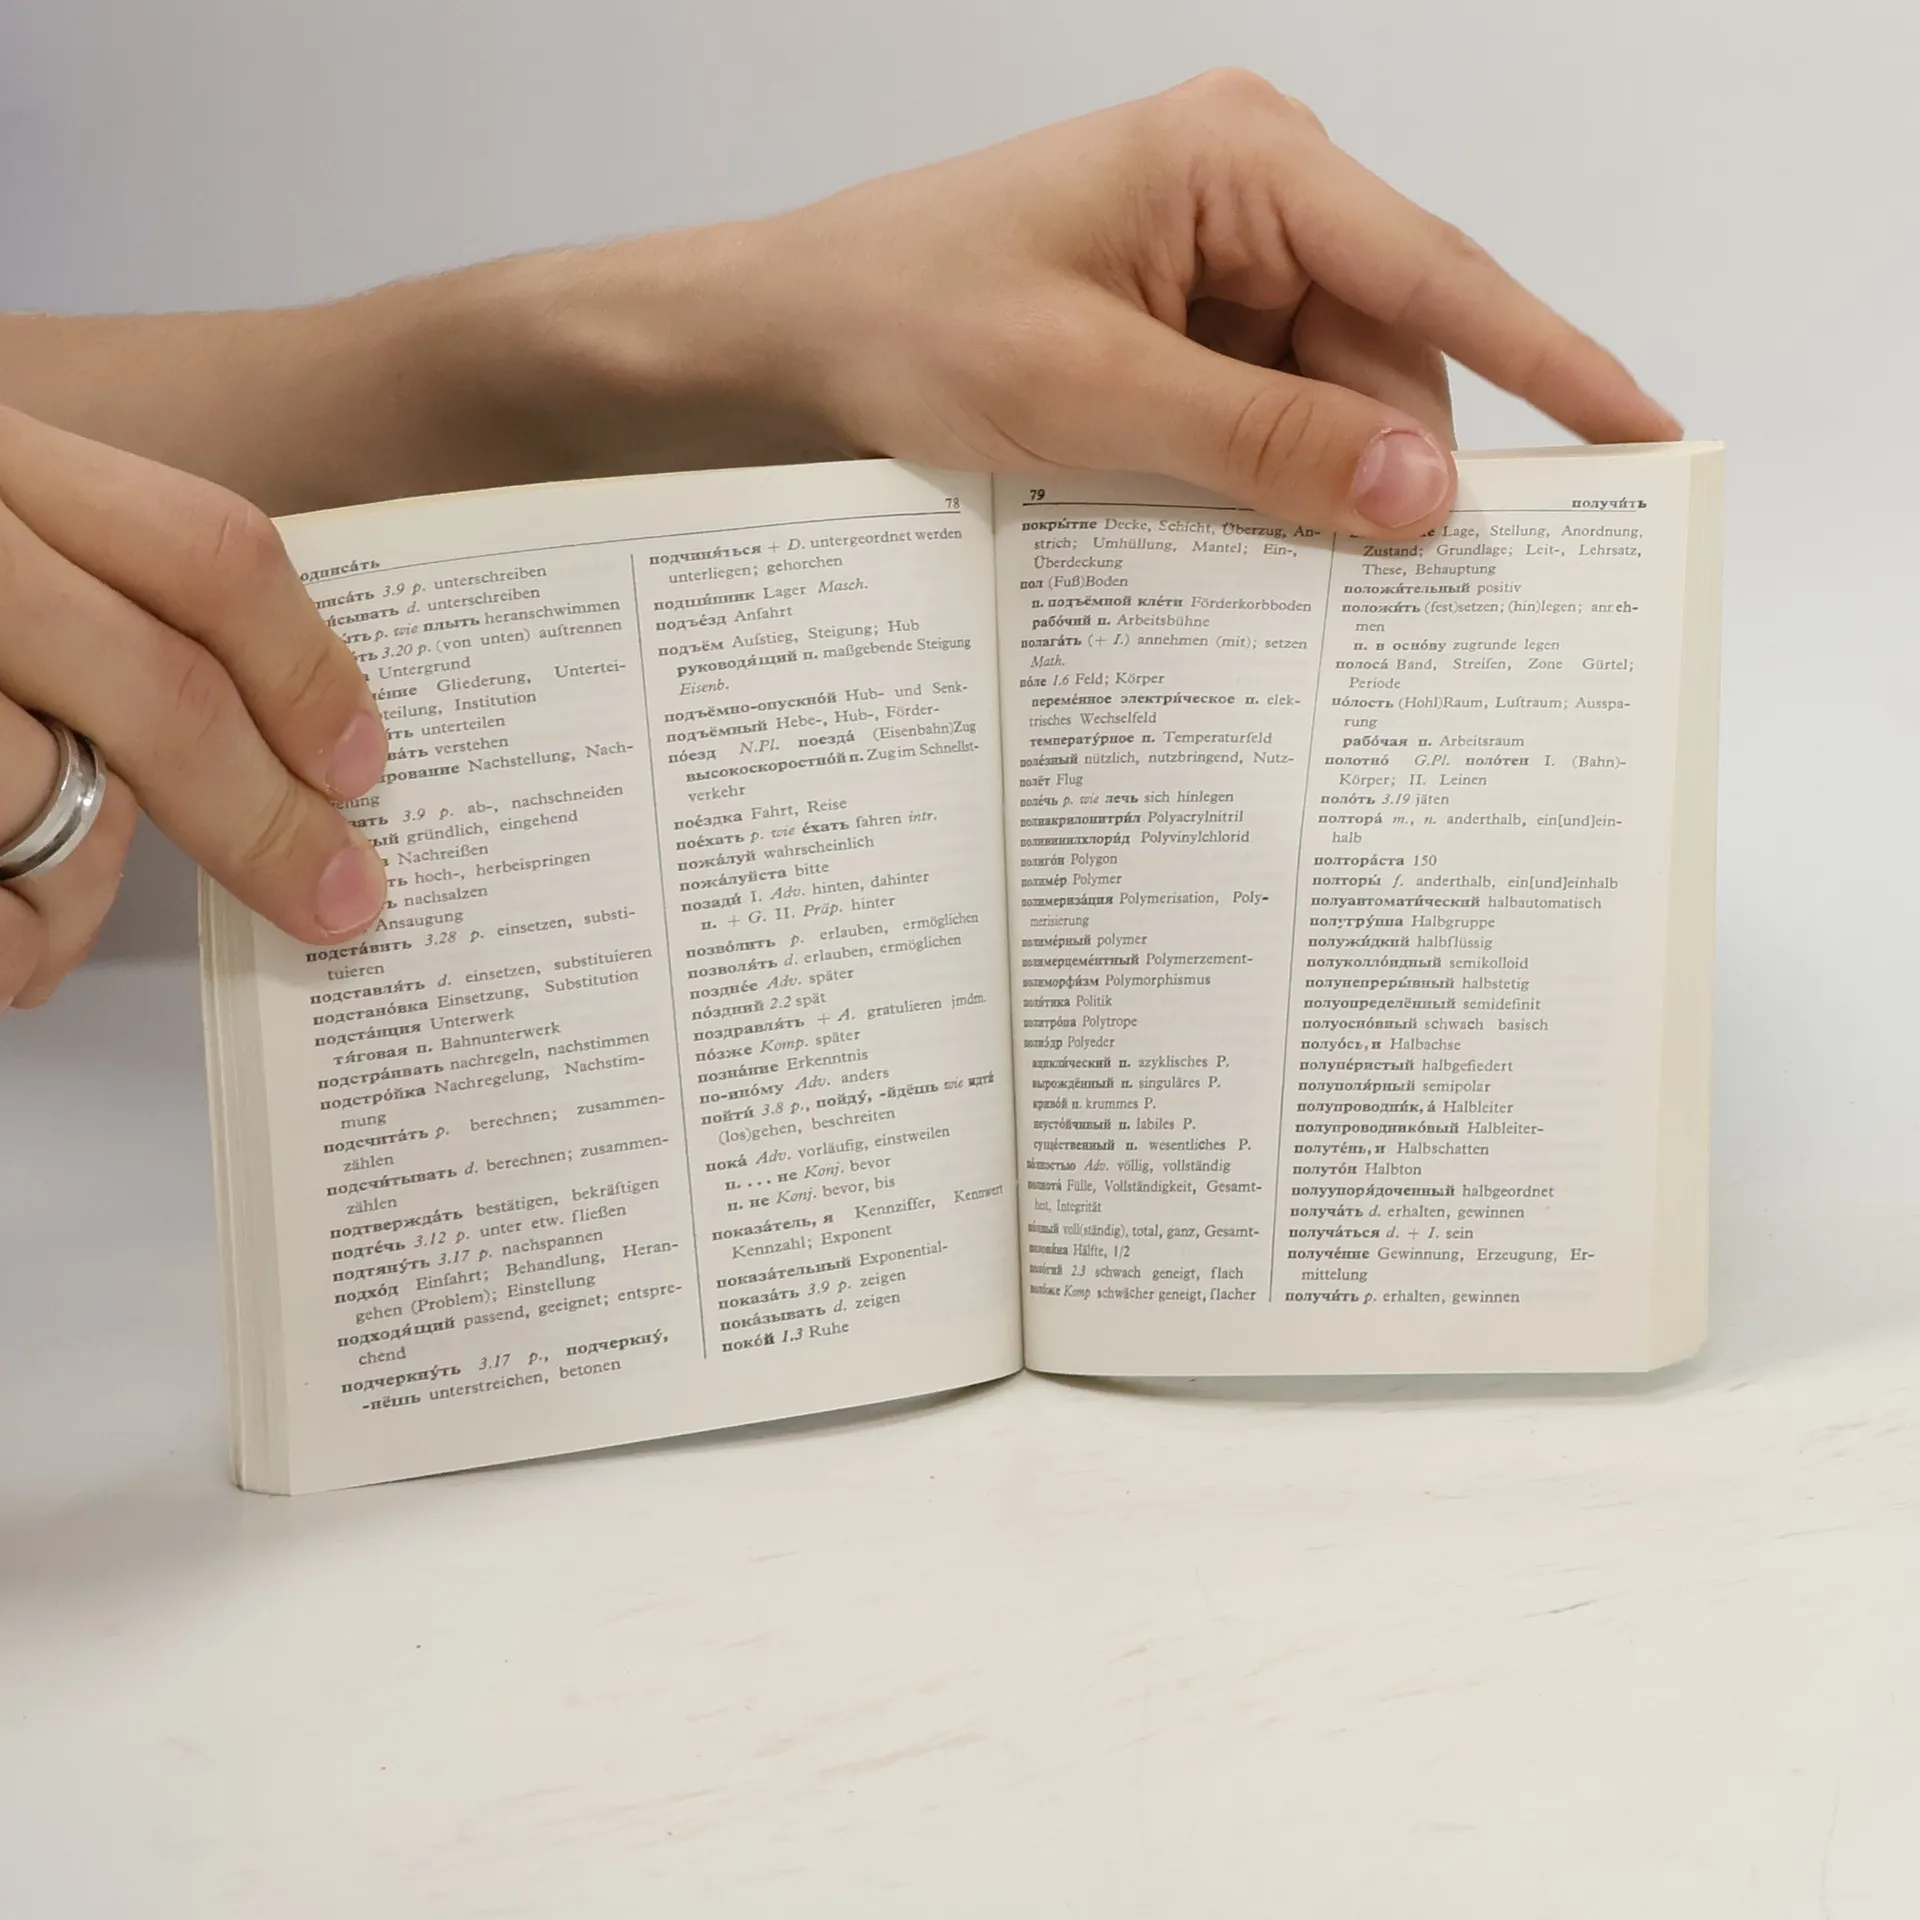 78
одписа́ть
3.9 p. unterschreiben
d. unterschreiben
p. wie плыть heranschwimmen
3.20 p. (von unten) auftrennen
Untergrund
Gliederung, Untertei-
teilung, Institution
unterteilen
verstehen
Nachstellung, Nach-
3.9 p. ab-, nachschneiden
gründlich, eingehend
Nachreißen
hoch-, herbeispringen
nachsalzen
Ansaugung
подста́вить 3.28 p. einsetzen, substi-
tuieren
подставля́ть d. einsetzen, substituieren
подстано́вка Einsetzung, Substitution
подста́нция Unterwerk
тя́говая п. Bahnunterwerk
подстра́ивать nachregeln, nachstimmen
подстро́йка Nachregelung, Nachstim-
mung
подсчита́ть p. berechnen; zusammen-
zählen
подсчи́тывать d. berechnen; zusammen-
zählen
подтвержда́ть bestätigen, bekräftigen
подте́чь 3.12 p. unter etw. fließen
подтяну́ть 3.17 p. nachspannen
подхо́д Einfahrt; Behandlung, Heran-
gehen (Problem); Einstellung
подходя́щий passend, geeignet; entspre-
chend
подчеркну́ть 3.17 p., подчеркну́,
-нёшь unterstreichen, betonen
подчиня́ться + D. untergeordnet werden
unterliegen; gehorchen
подши́пник Lager Masch.
подъе́зд Anfahrt
подъём Aufstieg, Steigung; Hub
руководя́щий п. maßgebende Steigung
Eisenb.
подъёмно-опускно́й Hub- und Senk-
подъёмный Hebe-, Hub-, Förder-
по́езд N.Pl. поезда́ (Eisenbahn)Zug
высокоскоростно́й п. Zug im Schnellst-
verkehr
пое́здка Fahrt, Reise
пое́хать p. wie е́хать fahren intr.
пожа́луй wahrscheinlich
пожа́луйста bitte
позади́ I. Adv. hinten, dahinter
п. + G. II. Präp. hinter
позво́лить p. erlauben, ermöglichen
позволя́ть d. erlauben, ermöglichen
поздне́е Adv. später
по́здний 2.2 spät
поздравля́ть + A. gratulieren jmdm.
по́зже Komp. später
позна́ние Erkenntnis
по-ино́му Adv. anders
пойти́ 3.8 p., пойду́, -йдёшь wie идти́
(los)gehen, beschreiten
пока́ Adv. vorläufig, einstweilen
п. ... не Konj. bevor
п. не Konj. bevor, bis
показа́тель, я Kennziffer, Kennwert
Kennzahl; Exponent
показа́тельный Exponential-
показа́ть 3.9 p. zeigen
пока́зывать d. zeigen
поко́й 1.3 Ruhe
79
получи́ть
покры́тие Decke, Schicht, Überzug, An-
strich; Umhüllung, Mantel; Ein-,
Überdeckung
пол (Fuß)Boden
п. подъёмной кле́ти Förderkorbboden
рабо́чий п. Arbeitsbühne
полага́ть (+ I.) annehmen (mit); setzen
Math.
по́ле 1.6 Feld; Körper
переме́нное электри́ческое п. elek-
trisches Wechselfeld
температу́рное п. Temperaturfeld
поле́зный nützlich, nutzbringend, Nutz-
полёт Flug
поле́чь p. wie лечь sich hinlegen
полиакрилонитри́л Polyacrylnitril
поливинилхлори́д Polyvinylchlorid
полиго́н Polygon
полиме́р Polymer
полимериза́ция Polymerisation, Poly-
merisierung
полиме́рный polymer
полимерцеме́нтный Polymerzement-
полиморфи́зм Polymorphismus
поли́тика Politik
политро́па Polytrope
полиэ́др Polyeder
ациклический п. azyklisches P.
вырожде́нный п. singuläres P.
криво́й п. krummes P.
неусто́йчивый п. labiles P.
суще́ственный п. wesentliches P.
по́лностью Adv. völlig, vollständig
полнота́ Fülle, Vollständigkeit, Gesamt-
heit, Integrität
по́лный voll(ständig), total, ganz, Gesamt-
полови́на Hälfte, 1/2
поло́гий 2.3 schwach geneigt, flach
поло́же Komp schwächer geneigt, flacher
Lage, Stellung, Anordnung,
Zustand; Grundlage; Leit-, Lehrsatz,
These, Behauptung
положи́тельный positiv
положи́ть (fest)setzen; (hin)legen; anreh-
men
п. в осно́ву zugrunde legen
полоса́ Band, Streifen, Zone Gürtel;
Periode
по́лость (Hohl)Raum, Luftraum; Ausspa-
rung
рабо́чая п. Arbeitsraum
полотно́ G.Pl. поло́тен I. (Bahn)-
Körper; II. Leinen
поло́ть 3.19 jäten
полтора́ m., n. anderthalb, ein[und]ein-
halb
полтора́ста 150
полторы́ f. anderthalb, ein[und]einhalb
полуавтомати́ческий halbautomatisch
полугру́ппа Halbgruppe
полужи́дкий halbflüssig
полуколло́идный semikolloid
полунепреры́вный halbstetig
полуопределённый semidefinit
полуосно́вный schwach basisch
полуо́сь, и Halbachse
полупе́ристый halbgefiedert
полуполя́рный semipolar
полупроводни́к, а́ Halbleiter
полупроводнико́вый Halbleiter-
полуте́нь, и Halbschatten
полуто́н Halbton
полуупоря́доченный halbgeordnet
получа́ть d. erhalten, gewinnen
получа́ться d. + I. sein
получе́ние Gewinnung, Erzeugung, Er-
mittelung
получи́ть p. erhalten, gewinnen